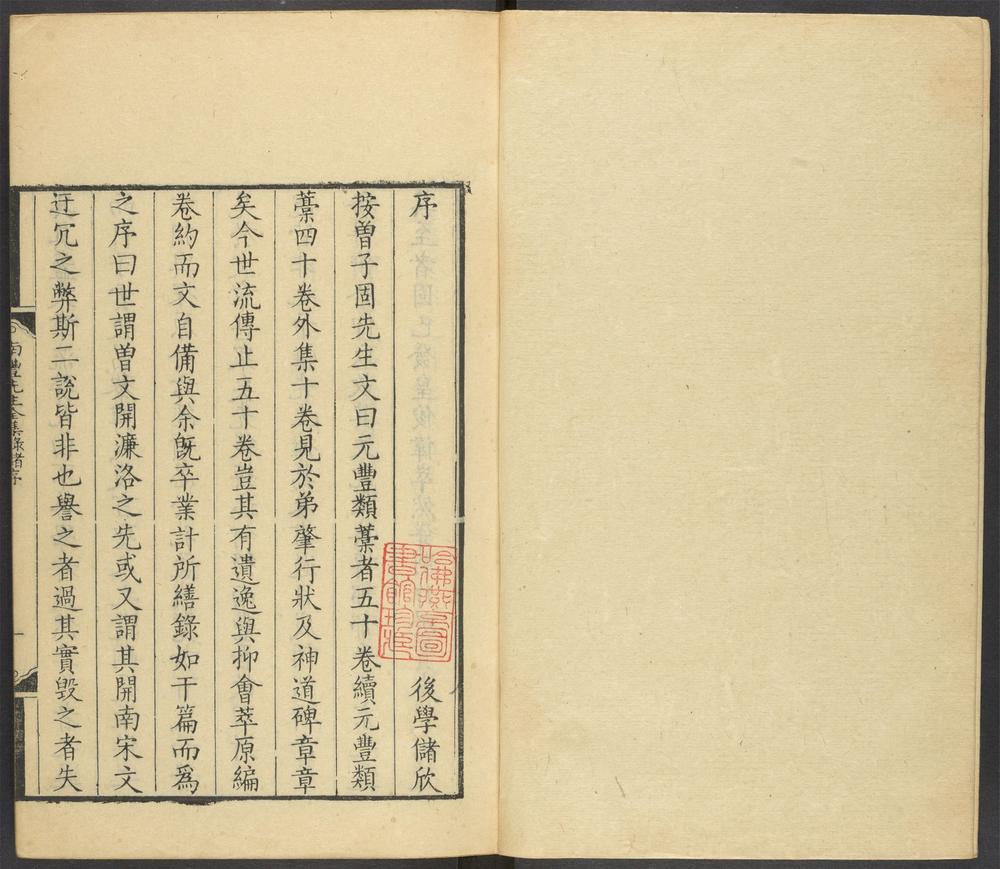 序 後學儲欣
按曾子固先生文曰元豐類藳者五十卷續元豐類
藳四十卷外集十卷見於弟肇行狀及神道碑章章
矣今世流傳止五十卷豈其有遺逸與抑會萃原編
卷約而文自備與余旣卒業計所繕錄如干篇而爲
之序曰世謂曾文開濂洛之先或又謂其開南宋文
迂冗之弊斯二說皆非也譽之者過其實毀之者失
南豐先生全集錄儲序
一
哈佛燕京圖書館珍藏